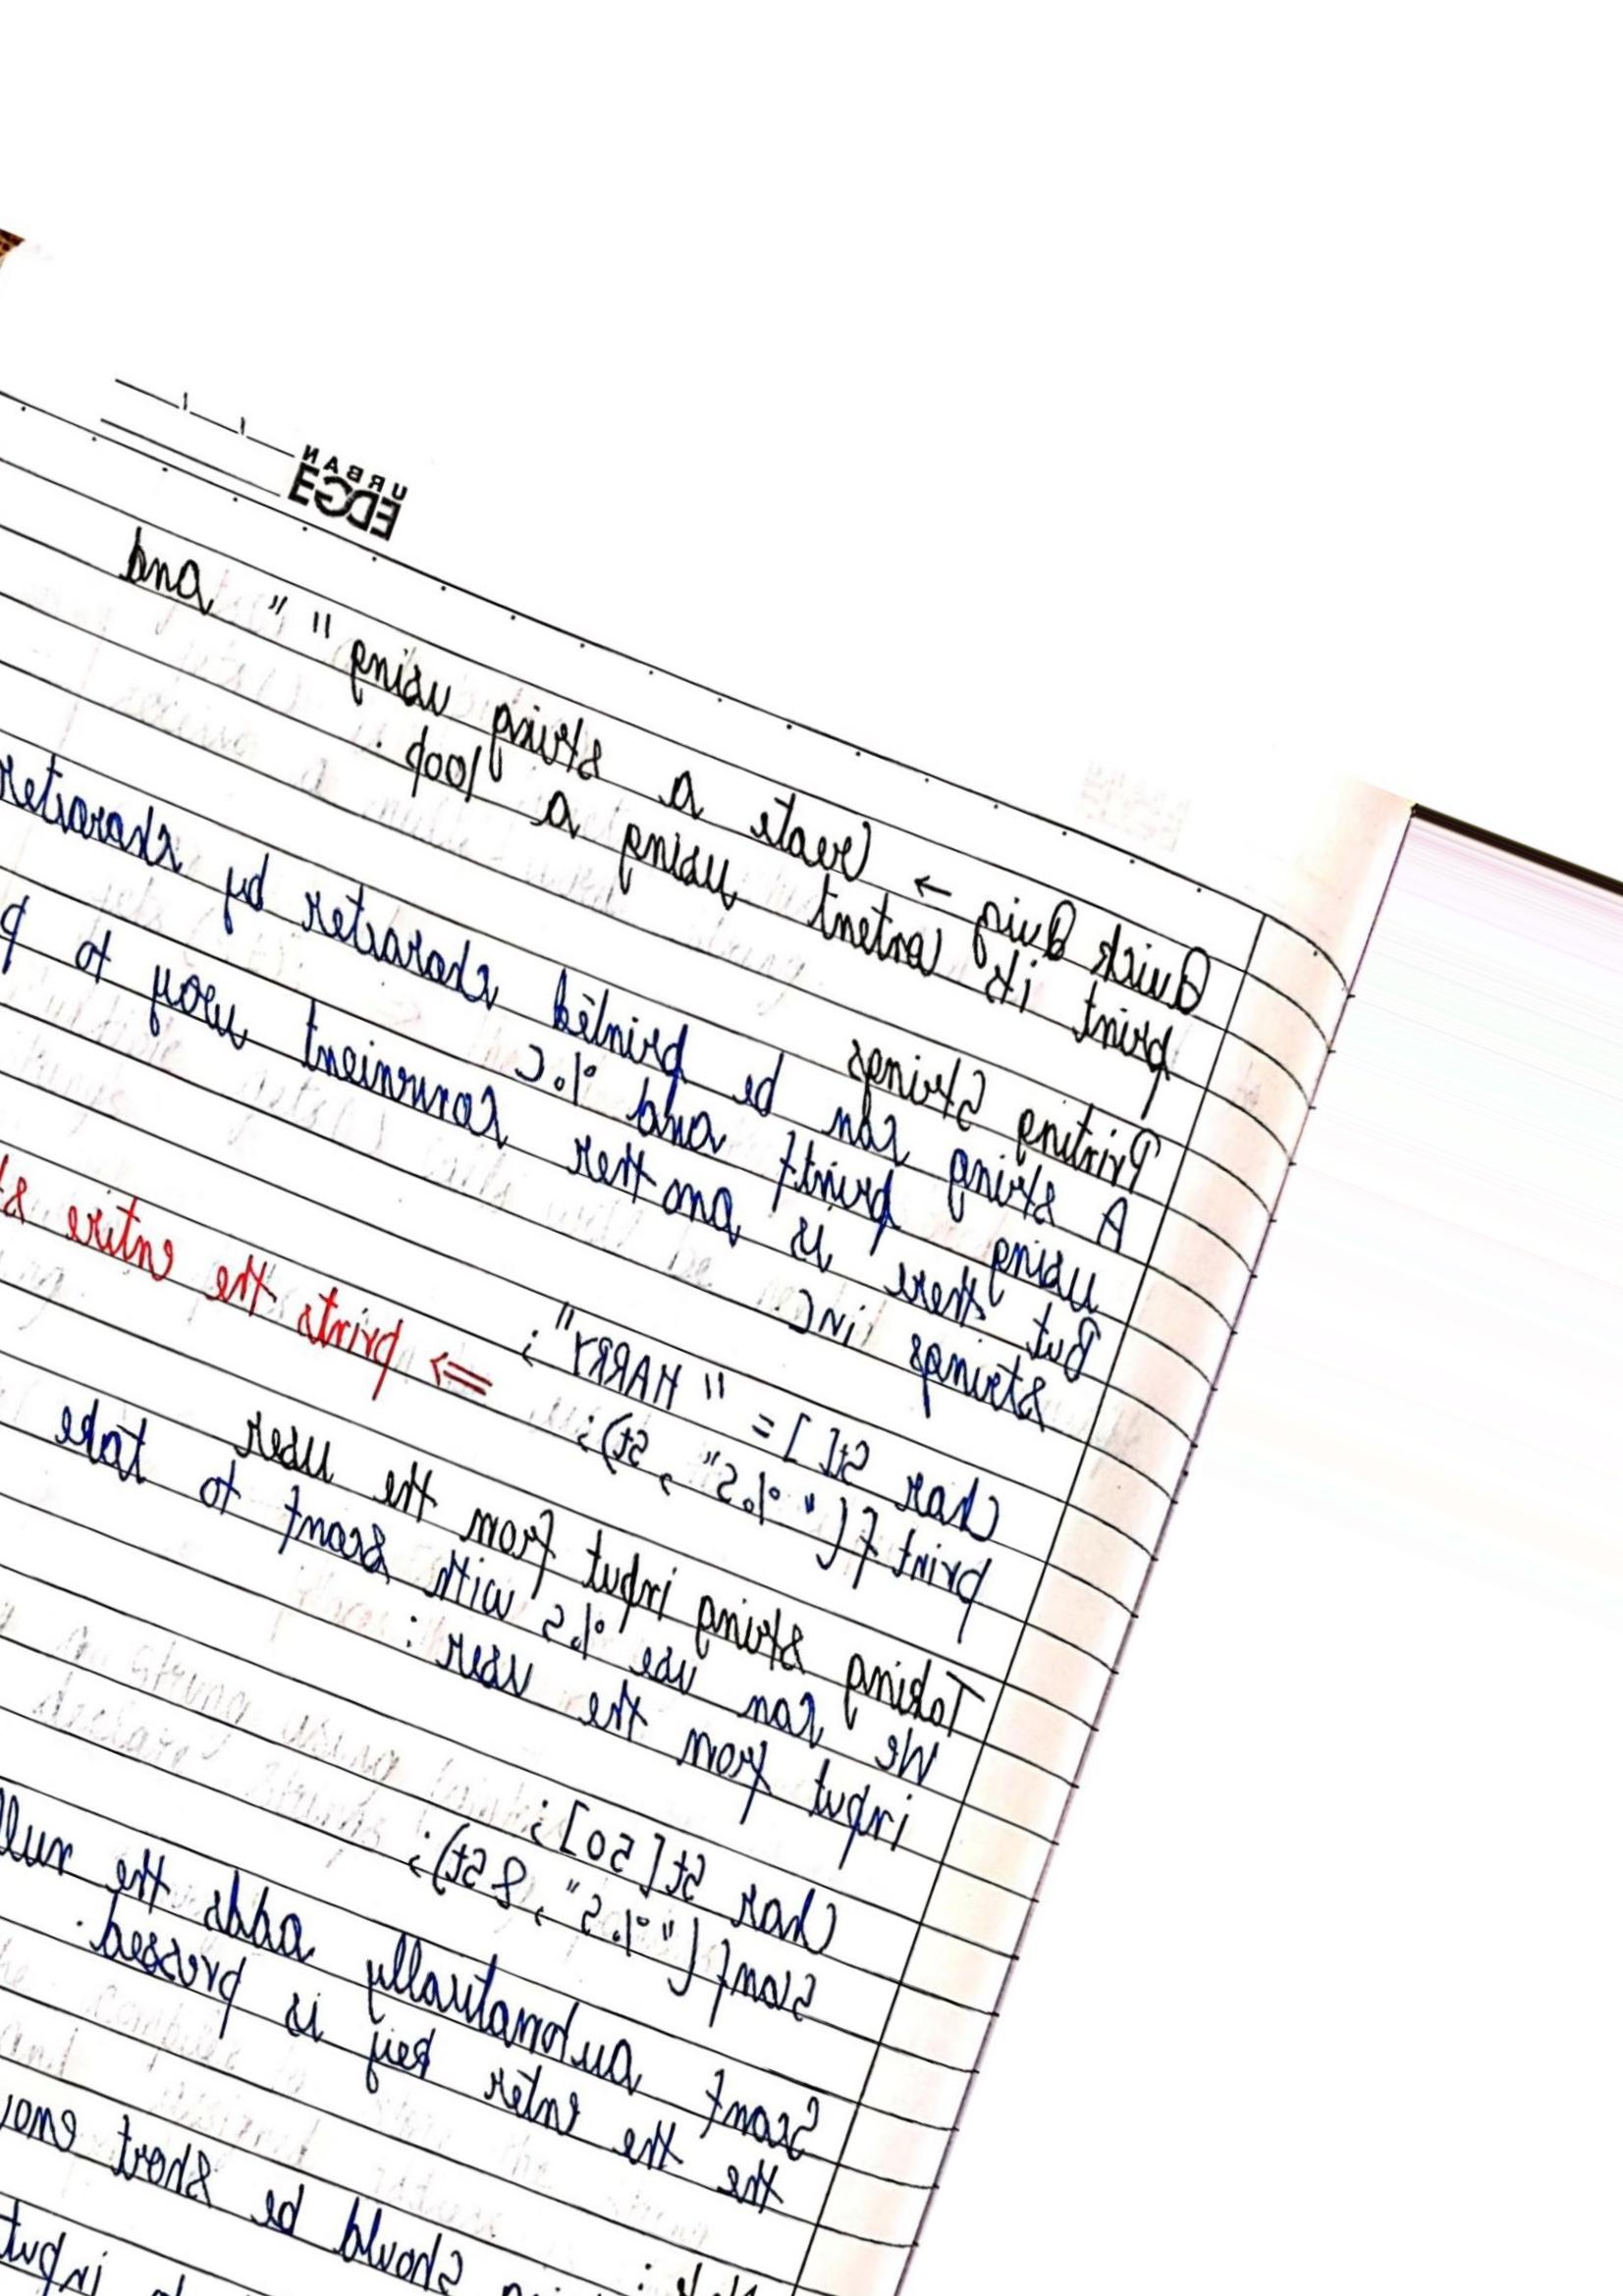 URBAN
EDGE
Quick Quiz → Create a string using " " and
print its content using a loop.
Printing Strings
A string can be printed character by character
using printf and %c
But there is another convenient way to p
strings in C
Char St[] = "HARRY";
printf("%s", St); ⇒ prints the entire st
Taking string input from the user
We can use %s with scanf to take
input from the user:
Char St[50];
Scanf("%s", &St);
Scanf automatically adds the null
the the enter key is pressed.
should be short enou
input